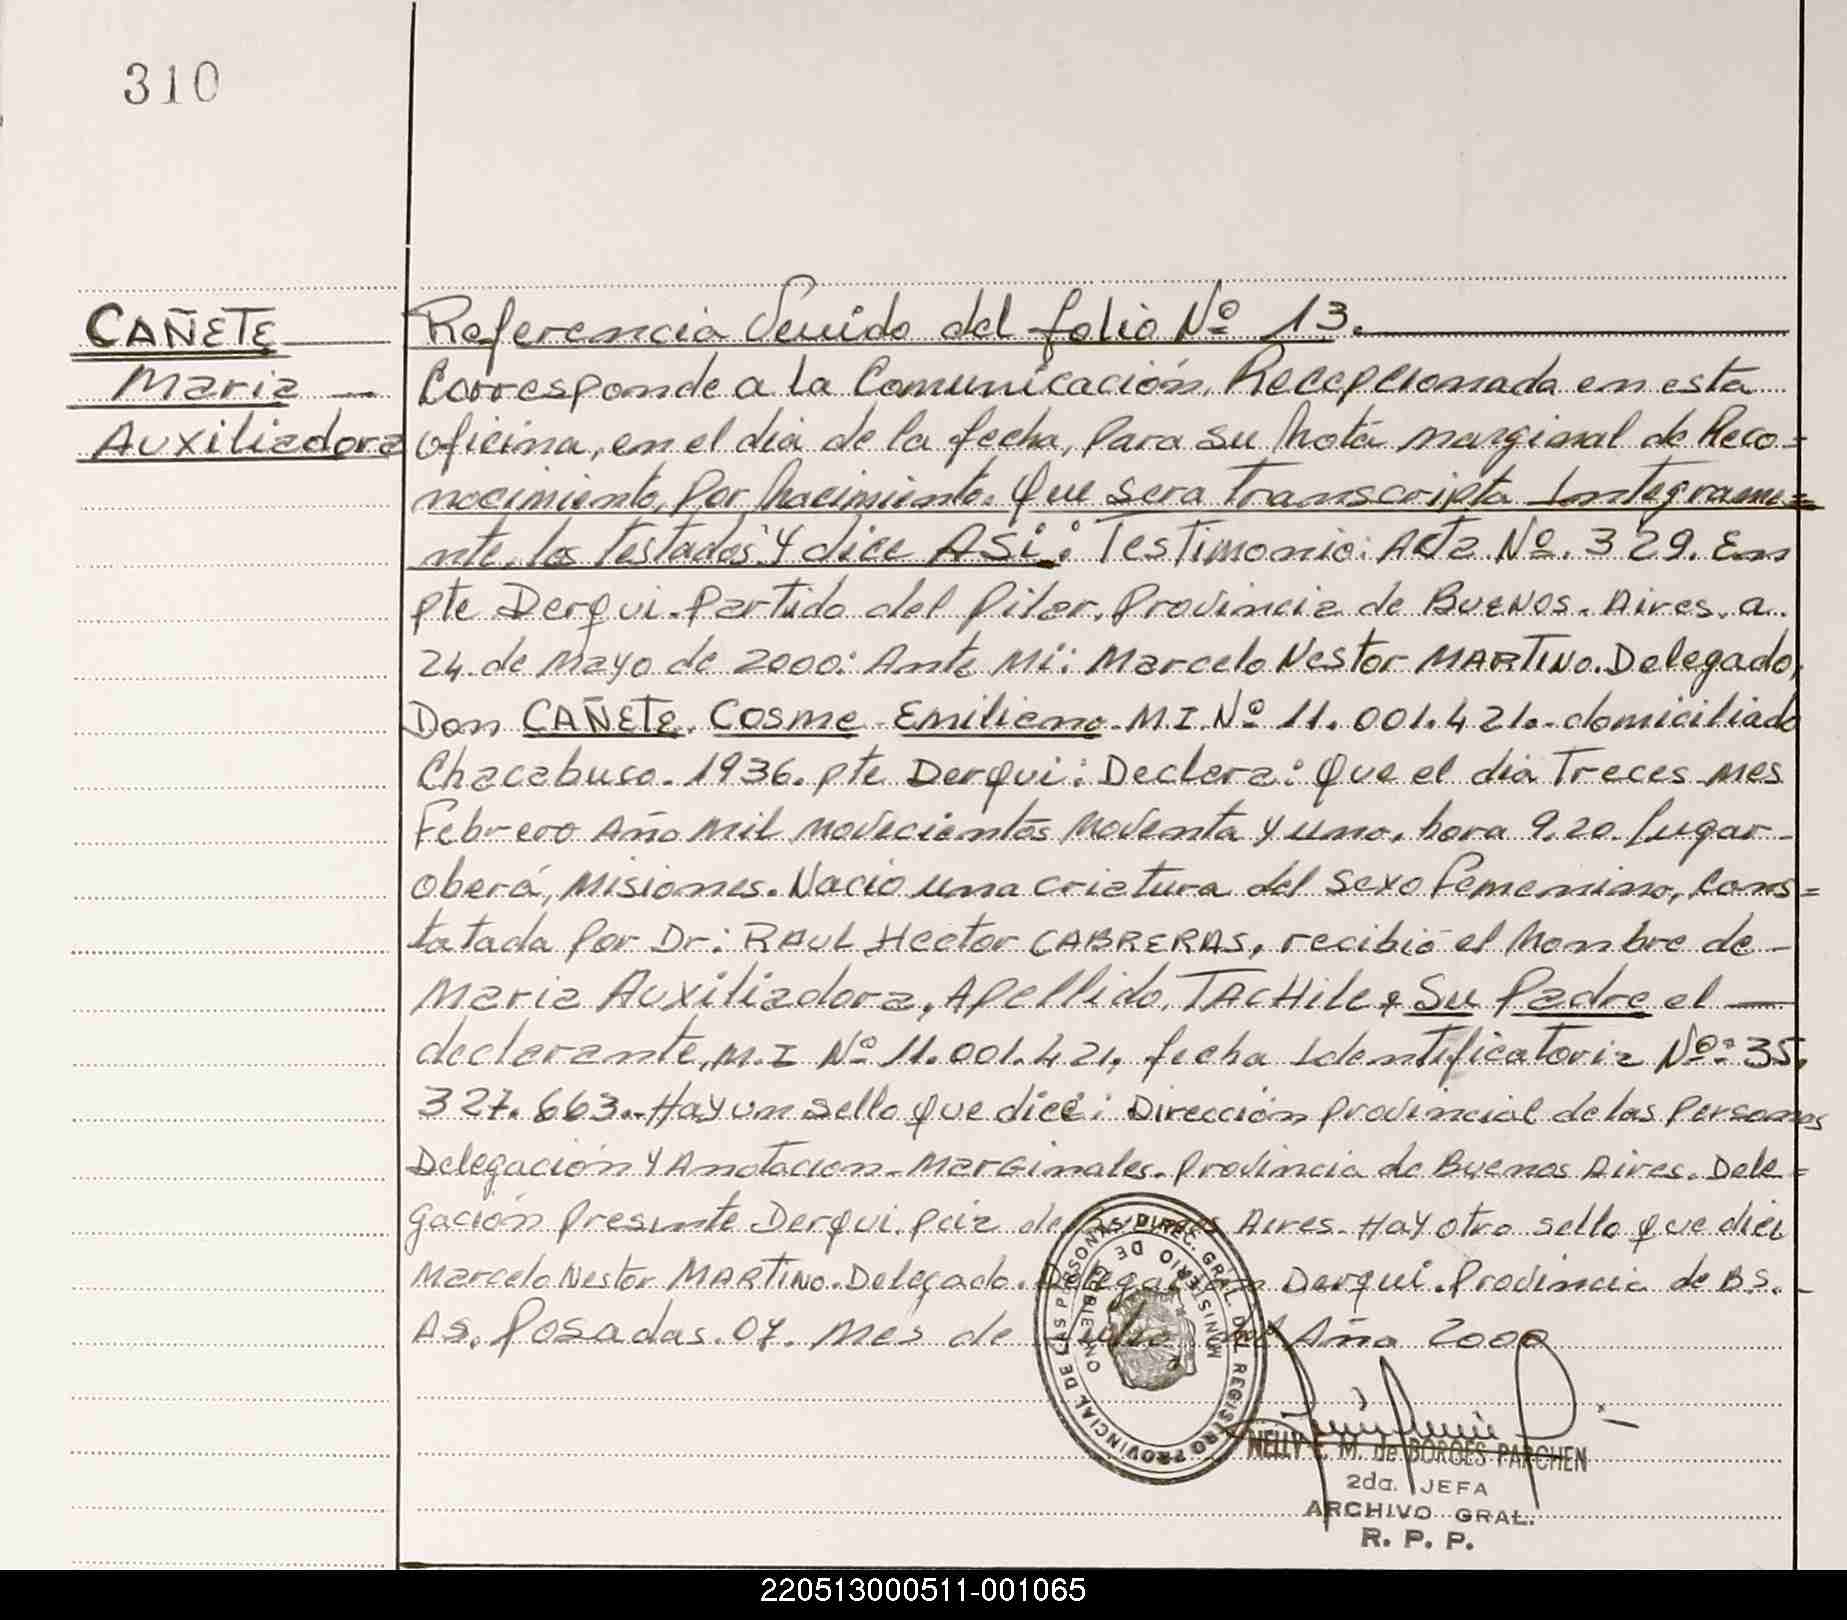 310
CAÑETE
Maria
Auxiliadora
Referencia Venido del folio Nº 13.
Corresponde a la Comunicación, Recepcionada en esta
oficina, en el dia de la fecha, para su Nota marginal de Reco=
nocimiento, por Nacimiento. Que sera Transcripta Integrame=
nte, los Testados Y dice ASi: Testimonio: Acta Nº. 329. En
pte Derqui. Partido del Pilar. Provincia de BUENOS. Aires. a
24 de Mayo de 2000: Ante Mi: Marcelo Nestor MARTINO. Delegado,
Don CAÑETE. Cosme Emiliano. M.I. Nº 11.001.421.- domiciliado
Chacabuco. 1936. pte Derqui: Declara: Que el dia Treces mes
Febrero Año Mil Novecientos Noventa y uno, hora 9.20. lugar
oberá, Misiones. Nacio una criatura del sexo Femenino, Cons=
tatada por Dr: RAUL Hector CABRERAS, recibió el Nombre de
Maria Auxiliadora, Apellido, TACHILE, Su Padre el
declarante, M.I Nº 11.001.421, fecha Identificatoria Nº: 35.
327.663.- Hay un sello que dice: Dirección provincial de las Personas
Delegación Y Anotacion Marginales. Provincia de Buenos Aires. Dele=
gación Presente Derqui. Pcia de Aires. Hay otro sello que dice
Marcelo Nestor MARTINO. Delegado. Delegación Derqui. Provincia de B.S.
As. Posadas. 07. Mes de Año 2000
REGISTRO PROVINCIAL DE LAS PERSONAS DIREC. GRAL. DEL
MINISTERIO DE GOBIERNO
NELLY E. M. de BORGES PARCHEN
2da. JEFA
ARCHIVO GRAL.
R. P. P.
220513000511-001065